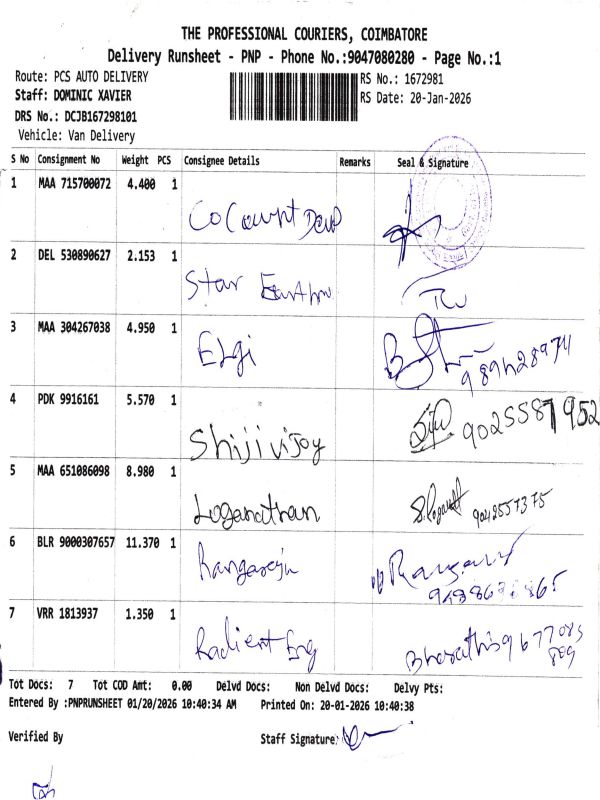 THE PROFESSIONAL COURIERS, COIMBATORE
Delivery Runsheet - PNP - Phone No.:9047080280 - Page No.:1
Route: PCS AUTO DELIVERY
RS No.: 1672981
Staff: DOMINIC XAVIER
RS Date: 20-Jan-2026
DRS No.: DCJB167298101
Vehicle: Van Delivery
S No Consignment No Weight PCS Consignee Details Remarks Seal & Signature
1 MAA 715700072 4.400 1
2 DEL 530890627 2.153 1 Star
3 MAA 304267038 4.950 1 Elgi
4 PDK 9916161 5.570 1 Shijivijoy 9025587952
5 MAA 651086098 8.980 1 Loganathan 9042557375
6 BLR 9000307657 11.370 1
7 VRR 1813937 1.350 1 Radient Eng 9677085
809
Tot Docs: 7 Tot COD Amt: 0.00 Delvd Docs: Non Delvd Docs: Delvy Pts:
Entered By :PNPRUNSHEET 01/20/2026 10:40:34 AM Printed On: 20-01-2026 10:40:38
Verified By Staff Signature: